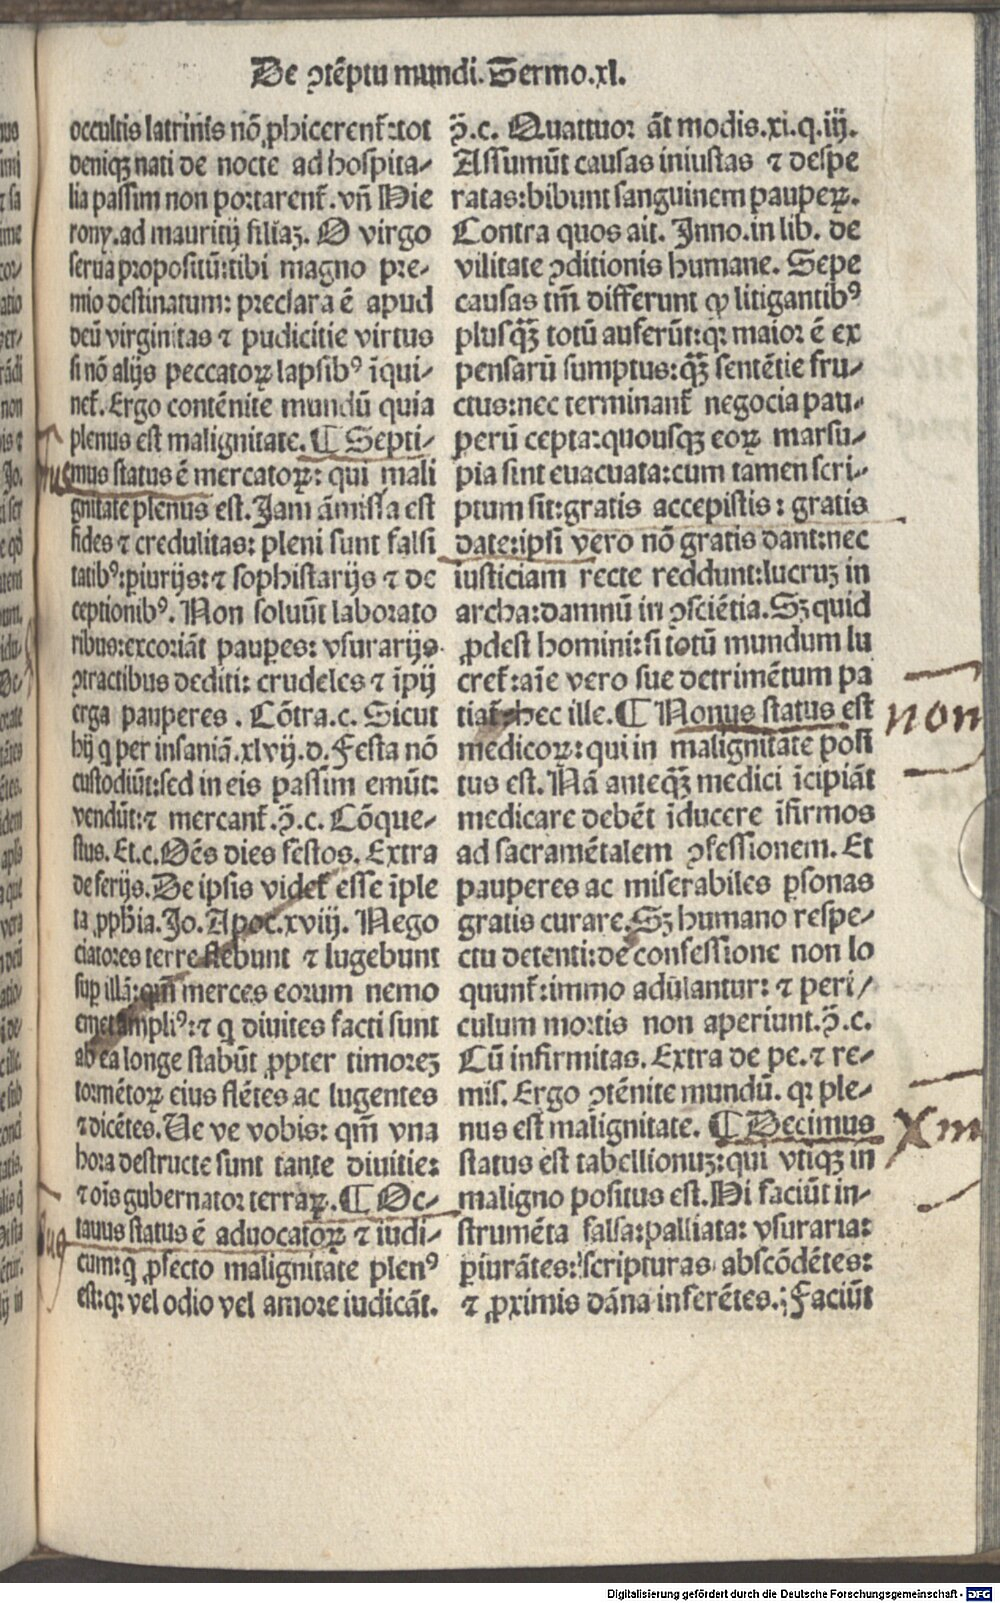 De ↄtēptu mundi. Sermo.xl.
occultis latrinis nō ꝓhicerent᷑:tot
deniqꝫ nati de nocte ad hospita-
lia passim non portarent᷑. vñ Hie
rony. ad mauritij filiaꝫ. O virgo
serua propositū:tibi magno pre-
mio destinatum: preclara ē apud
deū virginitas ⁊ pudicitie virtus
si nō alijs peccatoꝝ lapsibꝰ īqui-
net᷑. Ergo contēnite mundū quia
plenus est malignitate. ¶ Septi-
mus status ē mercatoꝝ: qui mali
gnitate plenus est. Jam āmissa est
fides ⁊ credulitas: pleni sunt falsi
tatibꝰ:ꝑiurijs:⁊ sophistarijs ⁊ de
ceptionibꝰ. Non soluūt laborato
ribus:excoriāt pauꝑes: vsurarijs
ↄtractibus dediti: crudeles ⁊ īpij
erga pauperes. Cōtra.c. Sicut
hij q per insaniā.xlvij.d. Festa nō
custodiūt:sed in eis passim emūt:
vendūt:⁊ mercant᷑.ꝟ.c. Cōque-
stus. Et.c. Oēs dies festos. Extra
de ferijs. De ipsis videt᷑ esse īple
ta ꝓph̄ia. Jo. Apoc.xviij. Nego
ciatores terre flebunt ⁊ lugebunt
suꝑ illā:qm̄ merces eorum nemo
emet ampliꝰ:⁊ q diuites facti sunt
ab ea longe stabūt ꝓpter timoreꝫ
tormētoꝝ eius flētes ac lugentes
⁊ dicētes. Ue ve vobis: qm̄ vna
hora destructe sunt tante diuitie:
⁊ oīs gubernator terraꝝ. ¶ Oc-
tauus status ē aduocatoꝝ ⁊ iudi-
cum:q ꝓfecto malignitate plenꝰ
est:qꝛ vel odio vel amore iudicāt.
ꝟ.c. Quattuor āt modis.xi.q.iij.
Assumūt causas iniustas ⁊ despe
ratas:bibunt sanguinem pauꝑeꝝ.
Contra quos ait. Inno. in lib. de
vilitate ↄditionis humane. Sepe
causas tm̄ differunt ꝙ litigantibꝰ
plusqꝫ̄ totū auferūt:qꝛ maior ē ex
pensarū sumptus:qꝫ̄ sentētie fru-
ctus:nec terminant᷑ negocia pau-
perū cepta:quousqꝫ eoꝝ marsu-
pia sint euacuata:cum tamen scri-
ptum sit:gratis accepistis: gratis
date:ipsi vero nō gratis dant:nec
iusticiam recte reddunt:lucruꝫ in
archa:damnū in ↄsciētia. Sꝫ quid
ꝓdest homini:si totū mundum lu
cret᷑:aīe vero sue detrimētum pa
tiat᷑:hec ille. ¶ Nonus status est
medicoꝝ:qui in malignitate posi
tus est. Nā anteqꝫ̄ medici īcipiāt
medicare debēt īducere īfirmos
ad sacramētalem ↄfessionem. Et
pauperes ac miserabiles ꝑsonas
gratis curare. Sꝫ humano respe-
ctu detenti:de confessione non lo
quunt᷑:immo adulantur: ⁊ peri-
culum mortis non aperiunt.ꝟ.c.
Cū infirmitas. Extra de pe.⁊ re-
mis. Ergo ↄtēnite mundū. qꝛ ple-
nus est malignitate. ¶ Decimus
status est tabellionuꝫ:qui vtiqꝫ in
maligno positus est. Hi faciūt in-
strumēta falsa:palliata: vsuraria:
ꝑiurātes:scripturas abscōdētes:
⁊ ꝓximis dāna inferētes. Faciūt
non
Xm
Digitalisierung gefördert durch die Deutsche Forschungsgemeinschaft - DFG